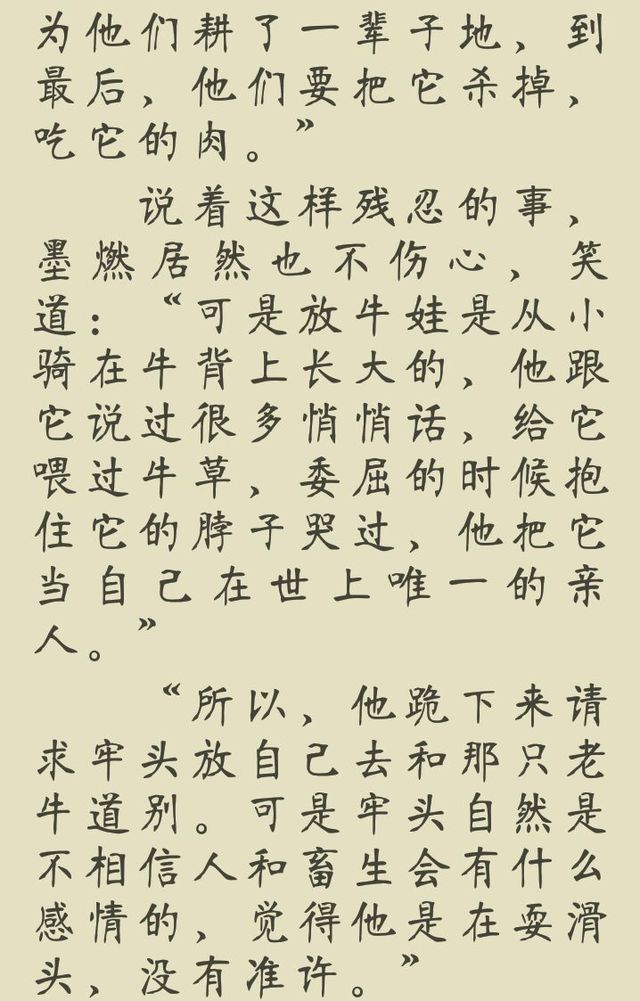 为他们耕了一辈子地，到
最后，他们要把它杀掉，
吃它的肉。”
说着这样残忍的事，
墨燃居然也不伤心，笑
道：“可是放牛娃是从小
骑在牛背上长大的，他跟
它说过很多悄悄话，给它
喂过牛草，委屈的时候抱
住它的脖子哭过，他把它
当自己在世上唯一的亲
人。”
“所以，他跪下来请
求牢头放自己去和那只老
牛道别。可是牢头自然是
不相信人和畜生会有什么
感情的，觉得他是在耍滑
头，没有准许。”